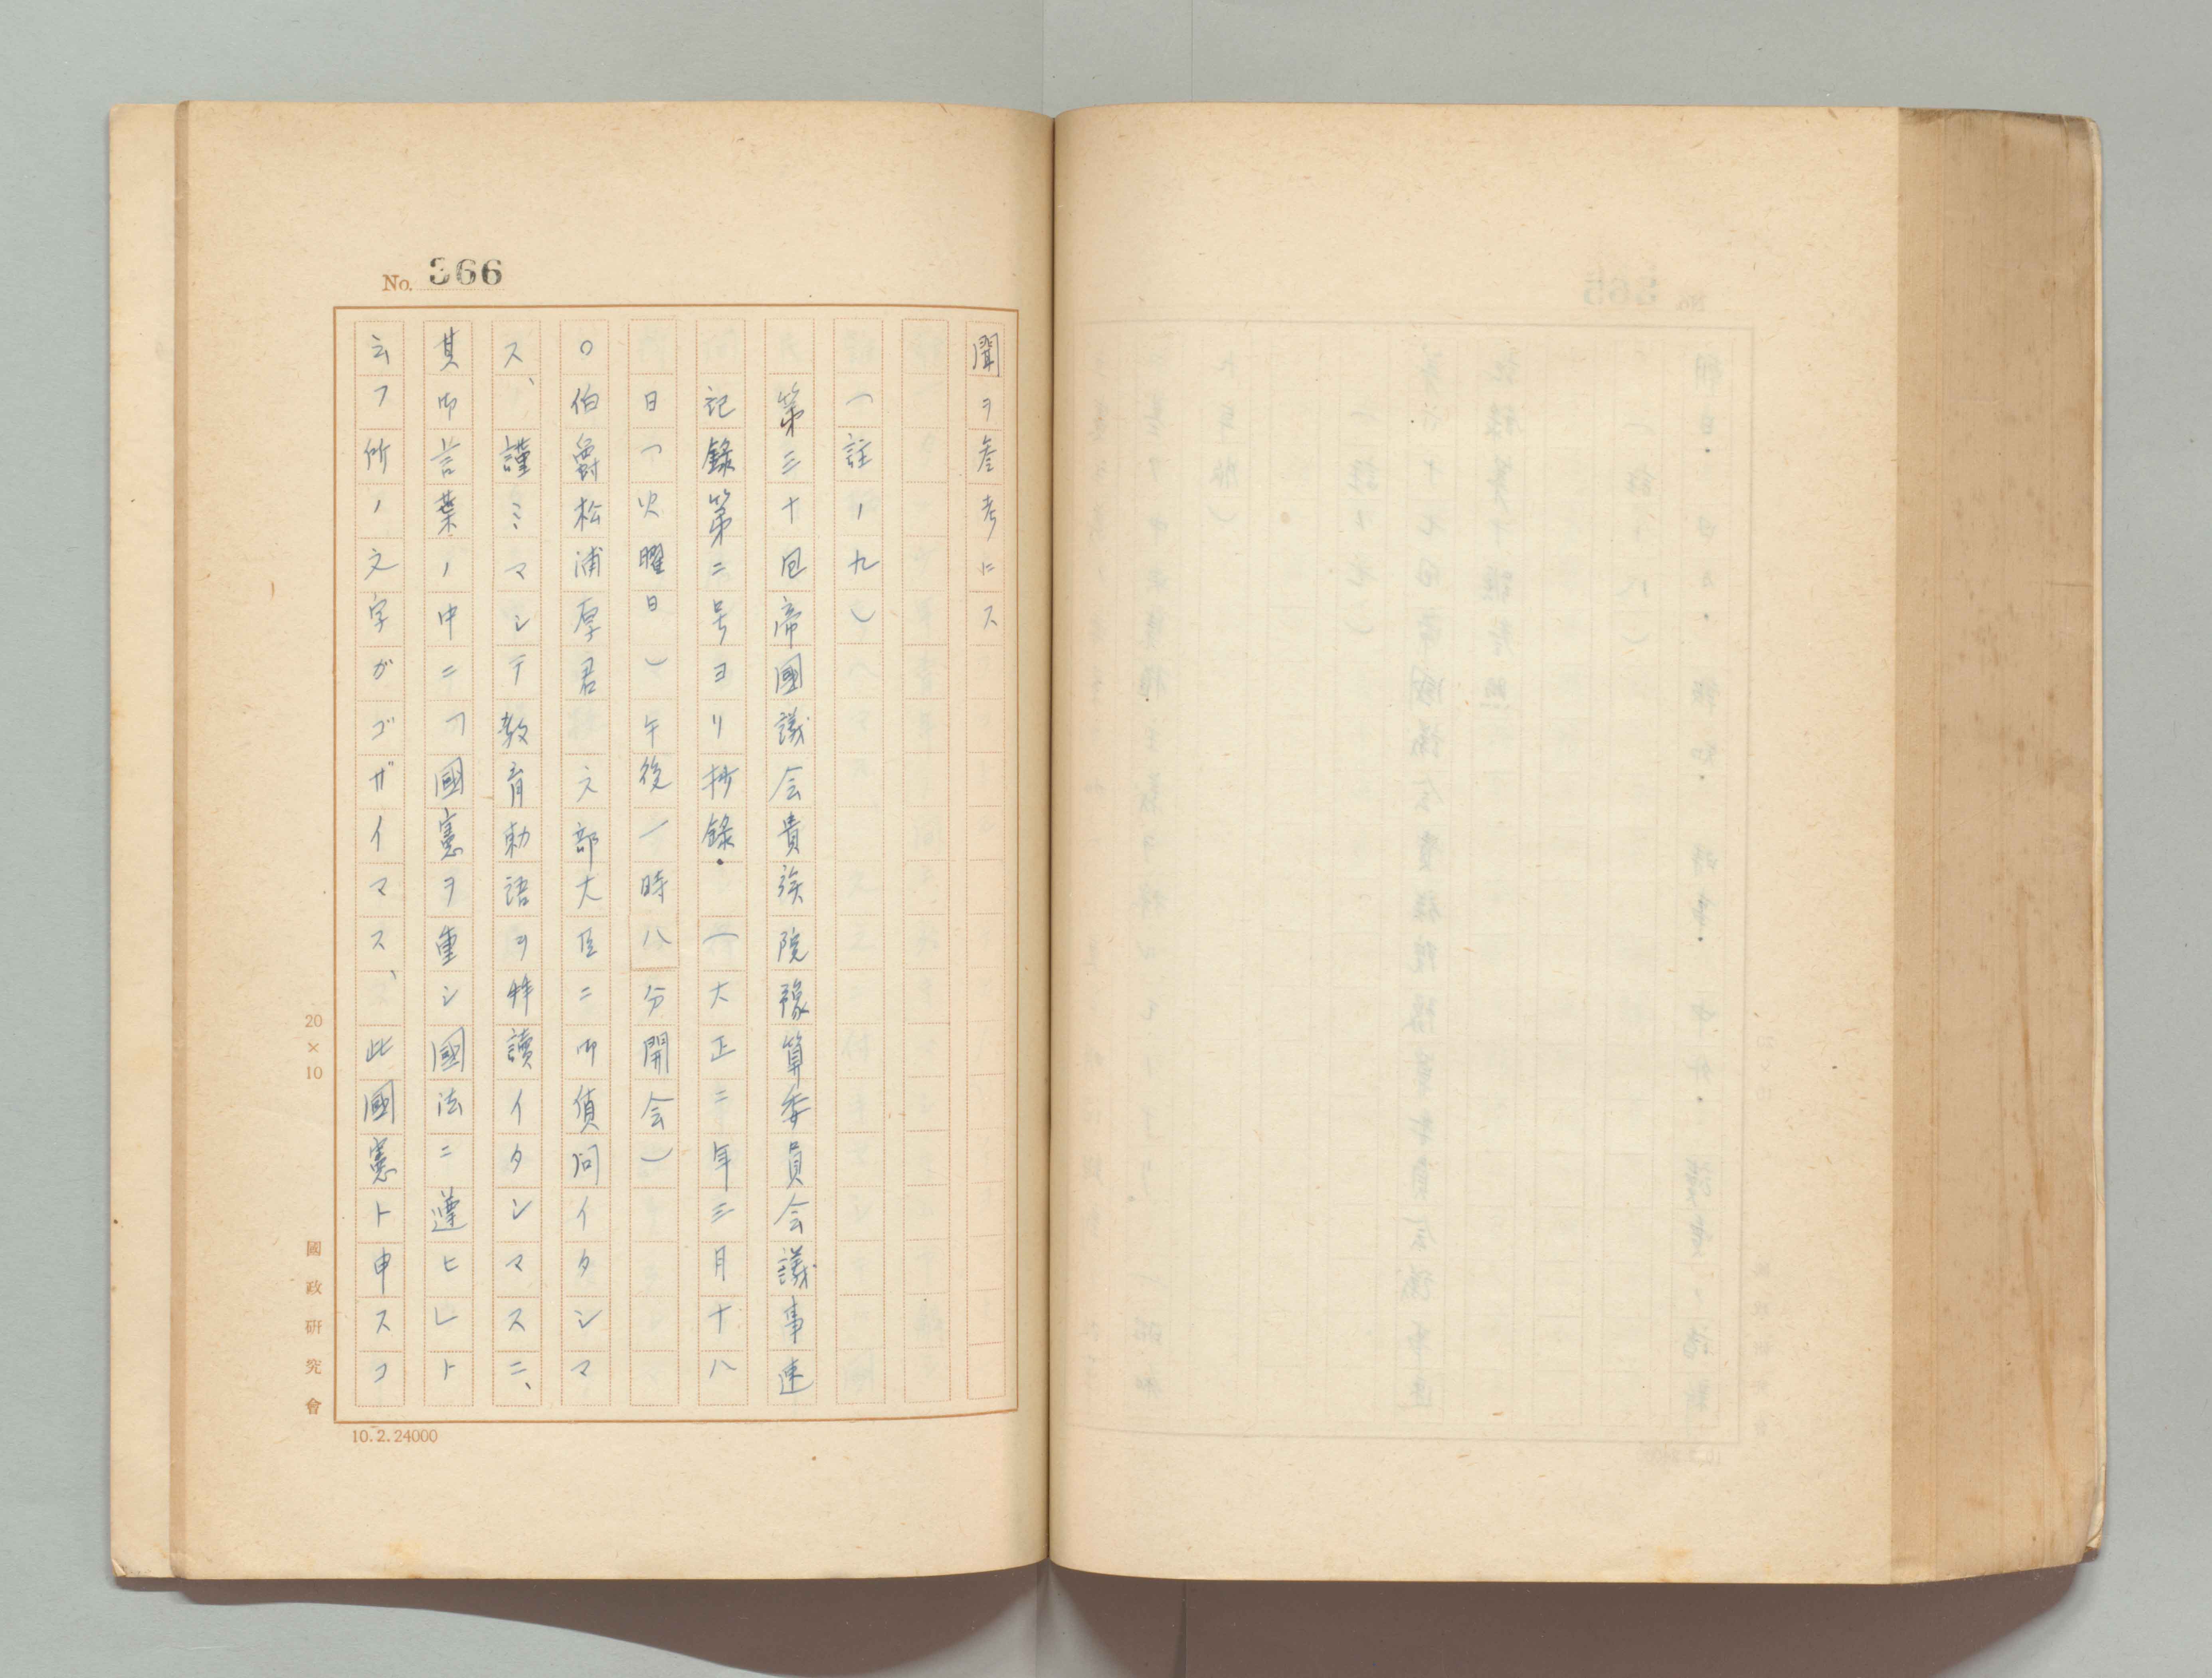 No. 366
聞ヲ参考ニス
（註ノ九）
第三十回帝國議会貴族院豫算委員会議事速
記錄第二号ヨリ抄錄．（大正二年三月十八
日（火曜日）午後一時八分開会）
○伯爵松浦厚君　文部大臣ニ御質問イタシマ
ス、謹ミマシテ教育勅語ヲ拜讀イタシマスニ、
其御言葉ノ中ニ「國憲ヲ重シ國法ニ遵ヒレト
云フ所ノ文字ガゴザイマス、此國憲ト申スコ
20×10
國政研究會
10.2.24000